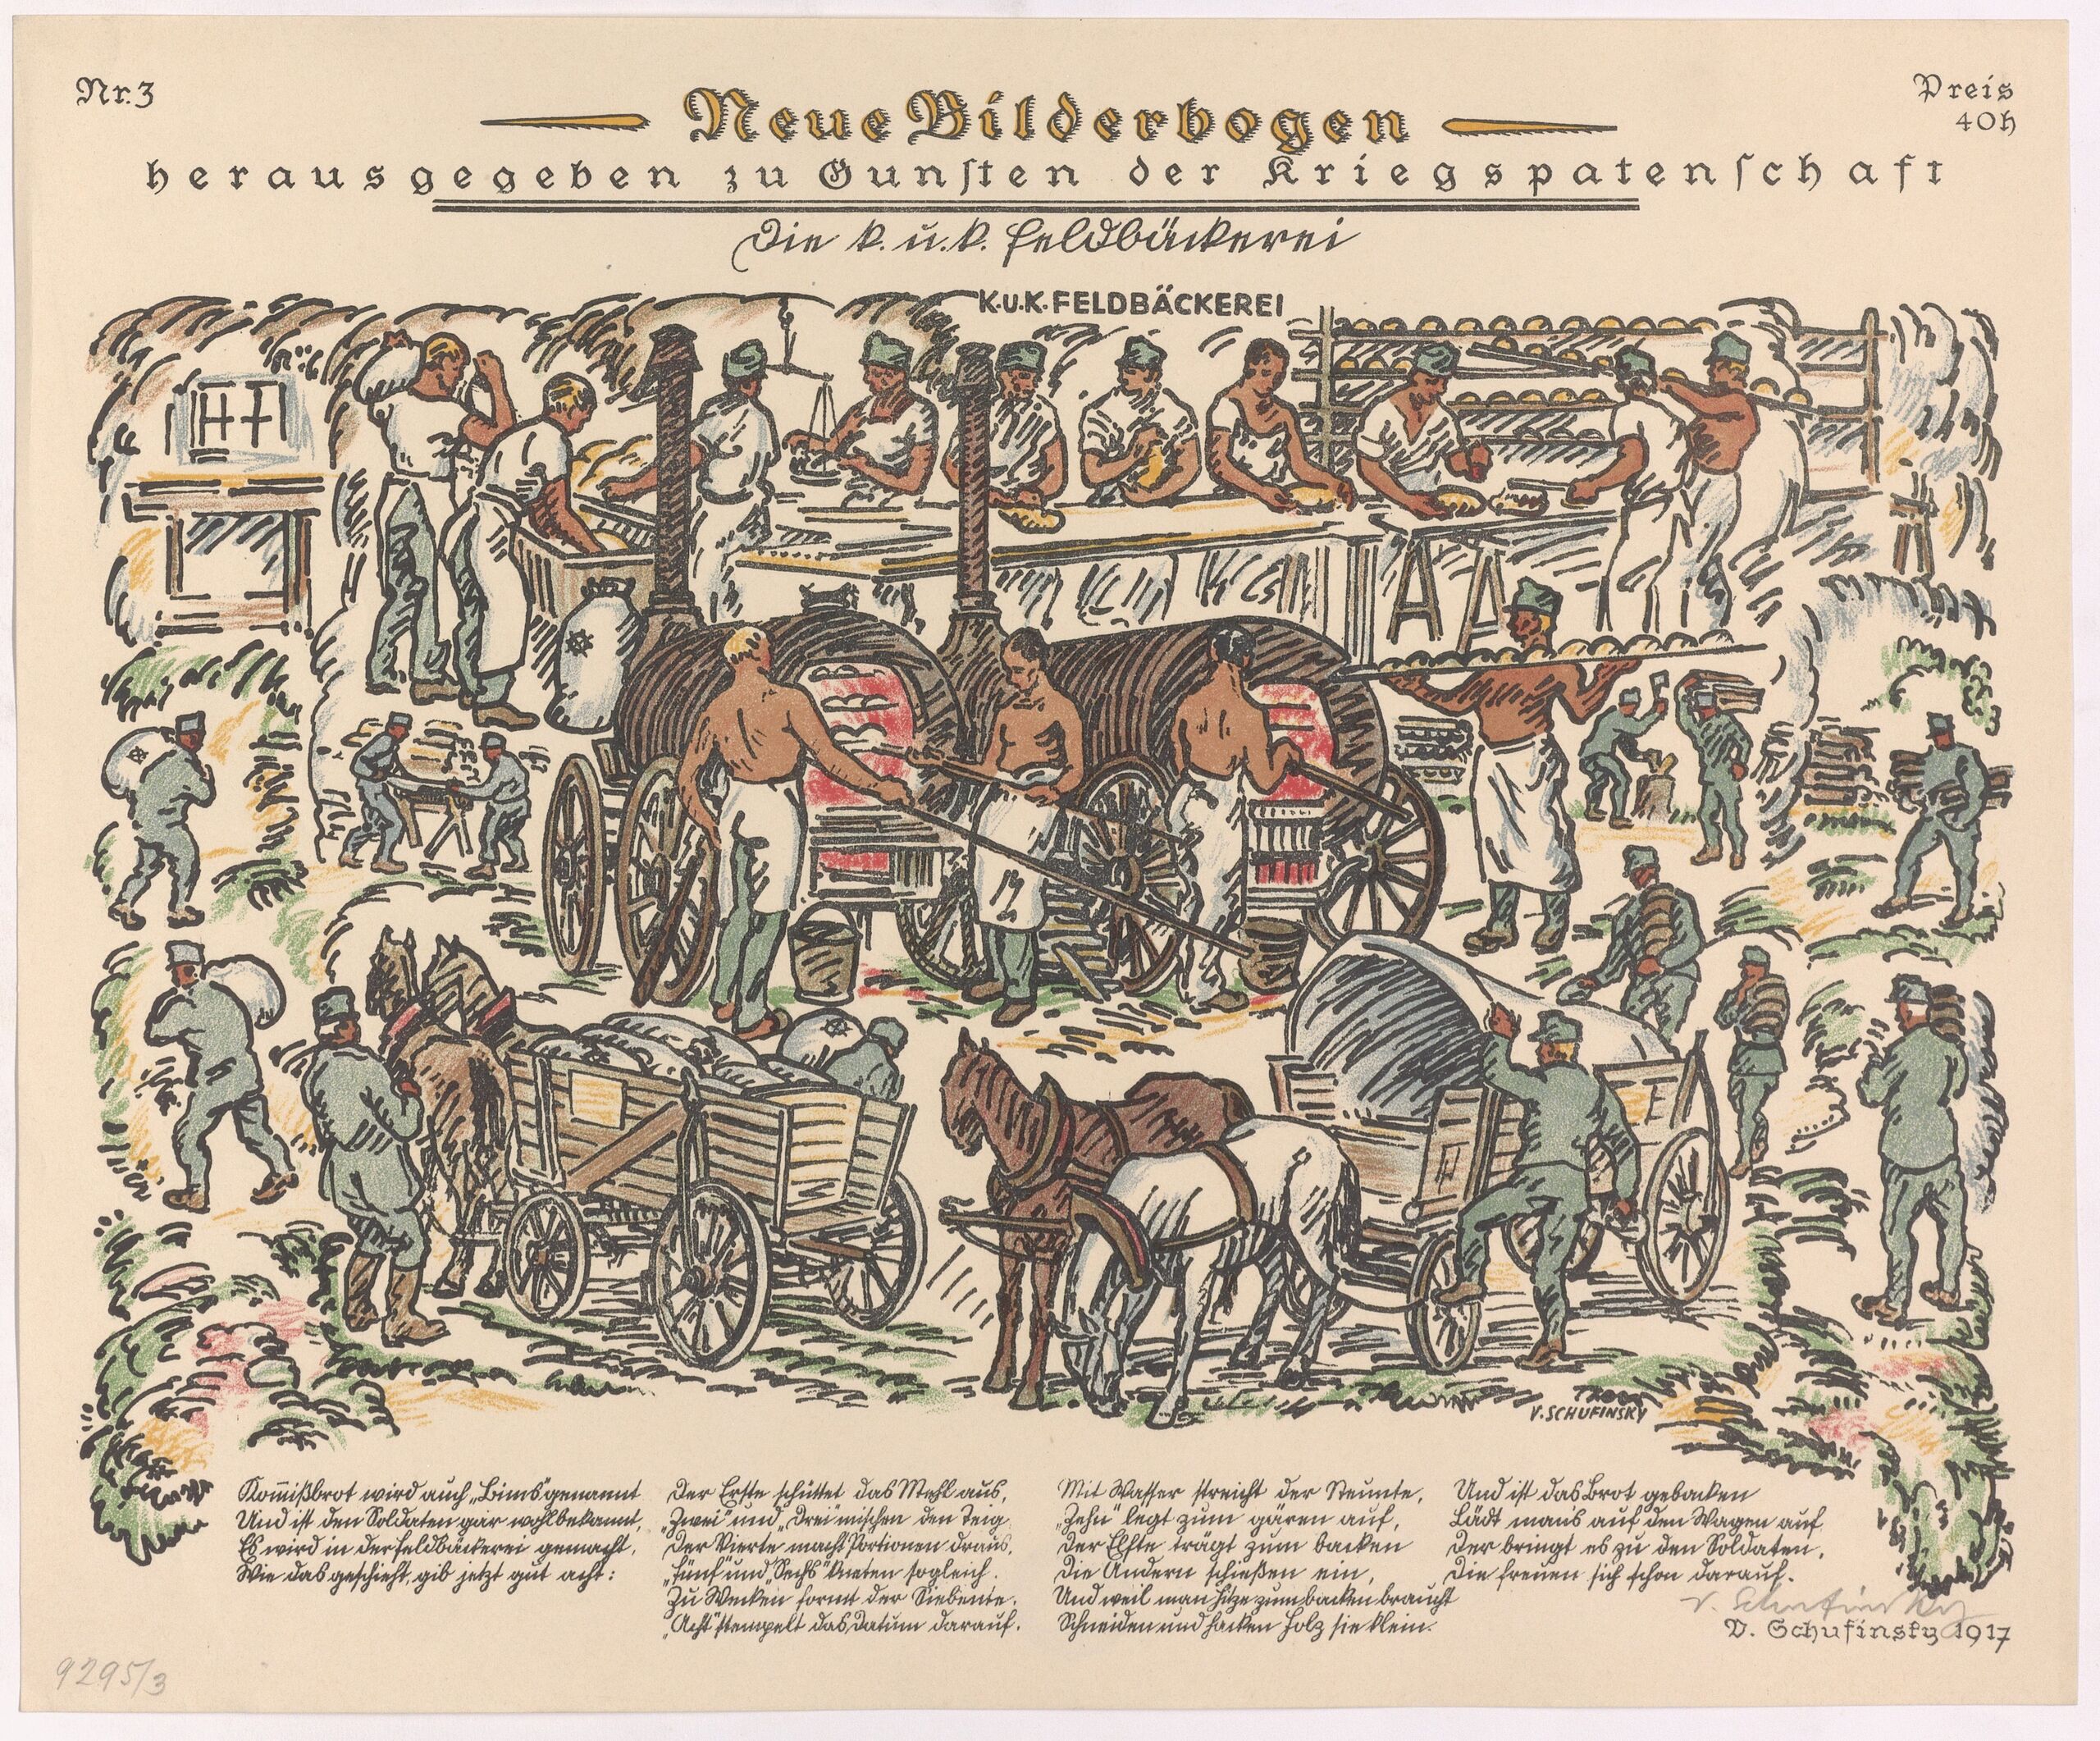 Nr. 3
Preis
40h
Neue Bilderbogen
herausgegeben zu Gunsten der Kriegspatenschaft
Die k. u. k. Feldbäckerei
K.u.K. FELDBÄCKEREI
V. SCHUFINSKY
Kom̄ißbrot wird auch „Bims“ genannt
Und ist den Soldaten gar wohlbekannt,
Es wird in der Feldbäckerei gemacht,
Wie das geschieht, gib jetzt gut acht:
Der Erste schüttet das Mehl aus,
„Zwei“ und „Drei“ mischen den Teig
Der Vierte macht Portionen draus,
„Fünf“ und „Sechs“ kneten sogleich.
Zu Wecken formt der Siebente.
„Acht“ stempelt das Datum darauf.
Mit Wasser streicht der Neunte,
„Zehn“ legt zum gären auf,
Der Elfte trägt zum backen
Die Andern schießen ein,
Und weil man Hitze zum backen braucht
Schneiden und hacken Holz sie klein.
Und ist das Brot gebacken
Lädt mans auf den Wagen auf
Der bringt es zu den Soldaten,
Die freuen sich schon darauf.
V. Schufinsky
V. Schufinsky 1917
9295/3